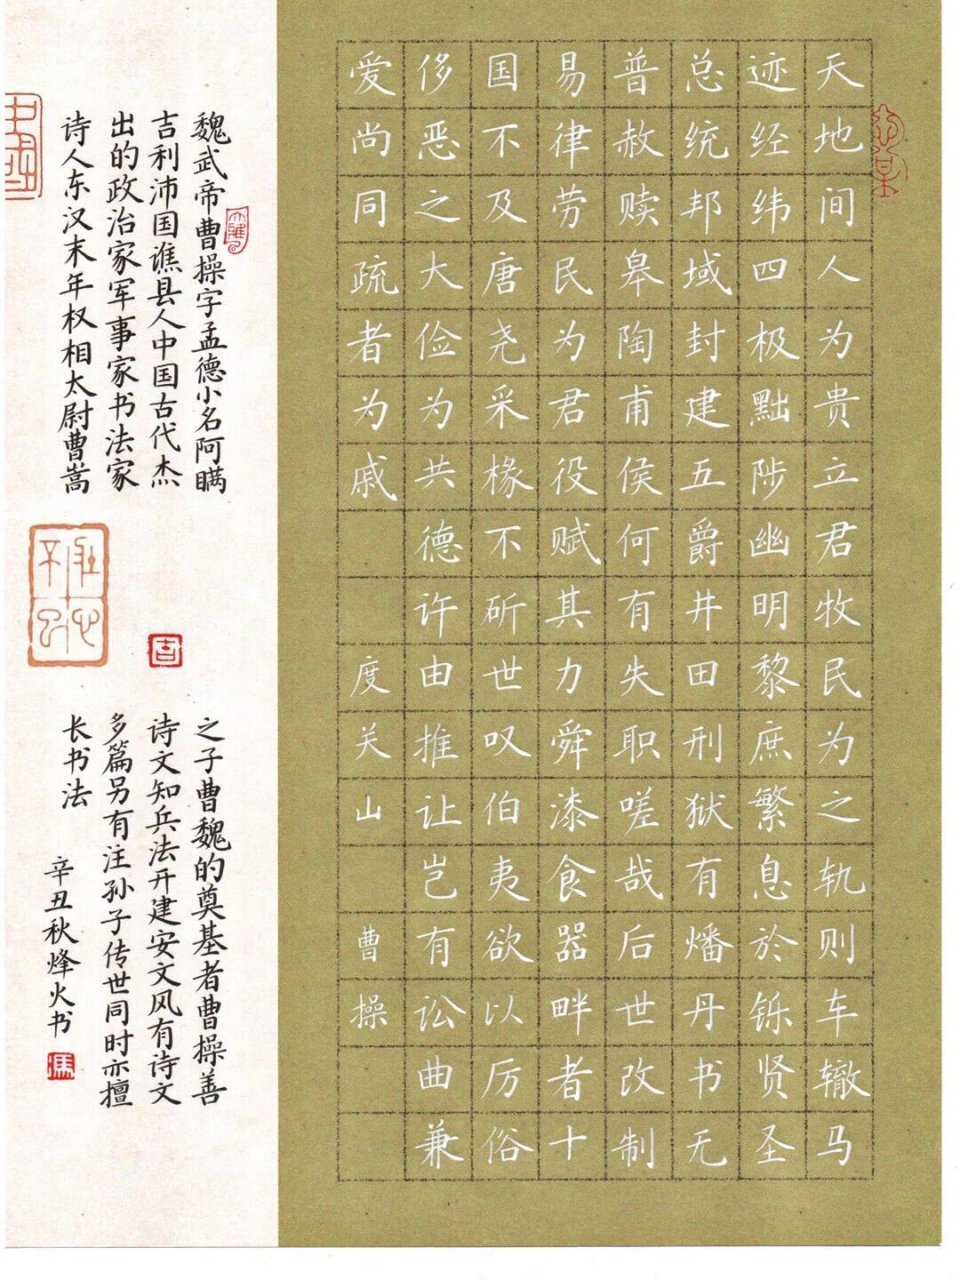 天地间人为贵立君牧民为之轨则车辙马
迹经纬四极黜陟幽明黎庶繁息於铄贤圣
总统邦域封建五爵井田刑狱有燔丹书无
普赦赎皋陶甫侯何有失职嗟哉后世改制
易律劳民为君役赋其力舜漆食器畔者十
国不及唐尧采椽不斫世叹伯夷欲以厉俗
侈恶之大俭为共德许由推让岂有讼曲兼
爱尚同疏者为戚 度关山 曹操
魏武帝曹操字孟德小名阿瞒
吉利沛国谯县人中国古代杰
出的政治家军事家书法家
诗人东汉末年权相太尉曹嵩
之子曹魏的奠基者曹操善
诗文知兵法开建安文风有诗文
多篇另有注孙子传世同时亦擅
长书法 辛丑秋烽火书